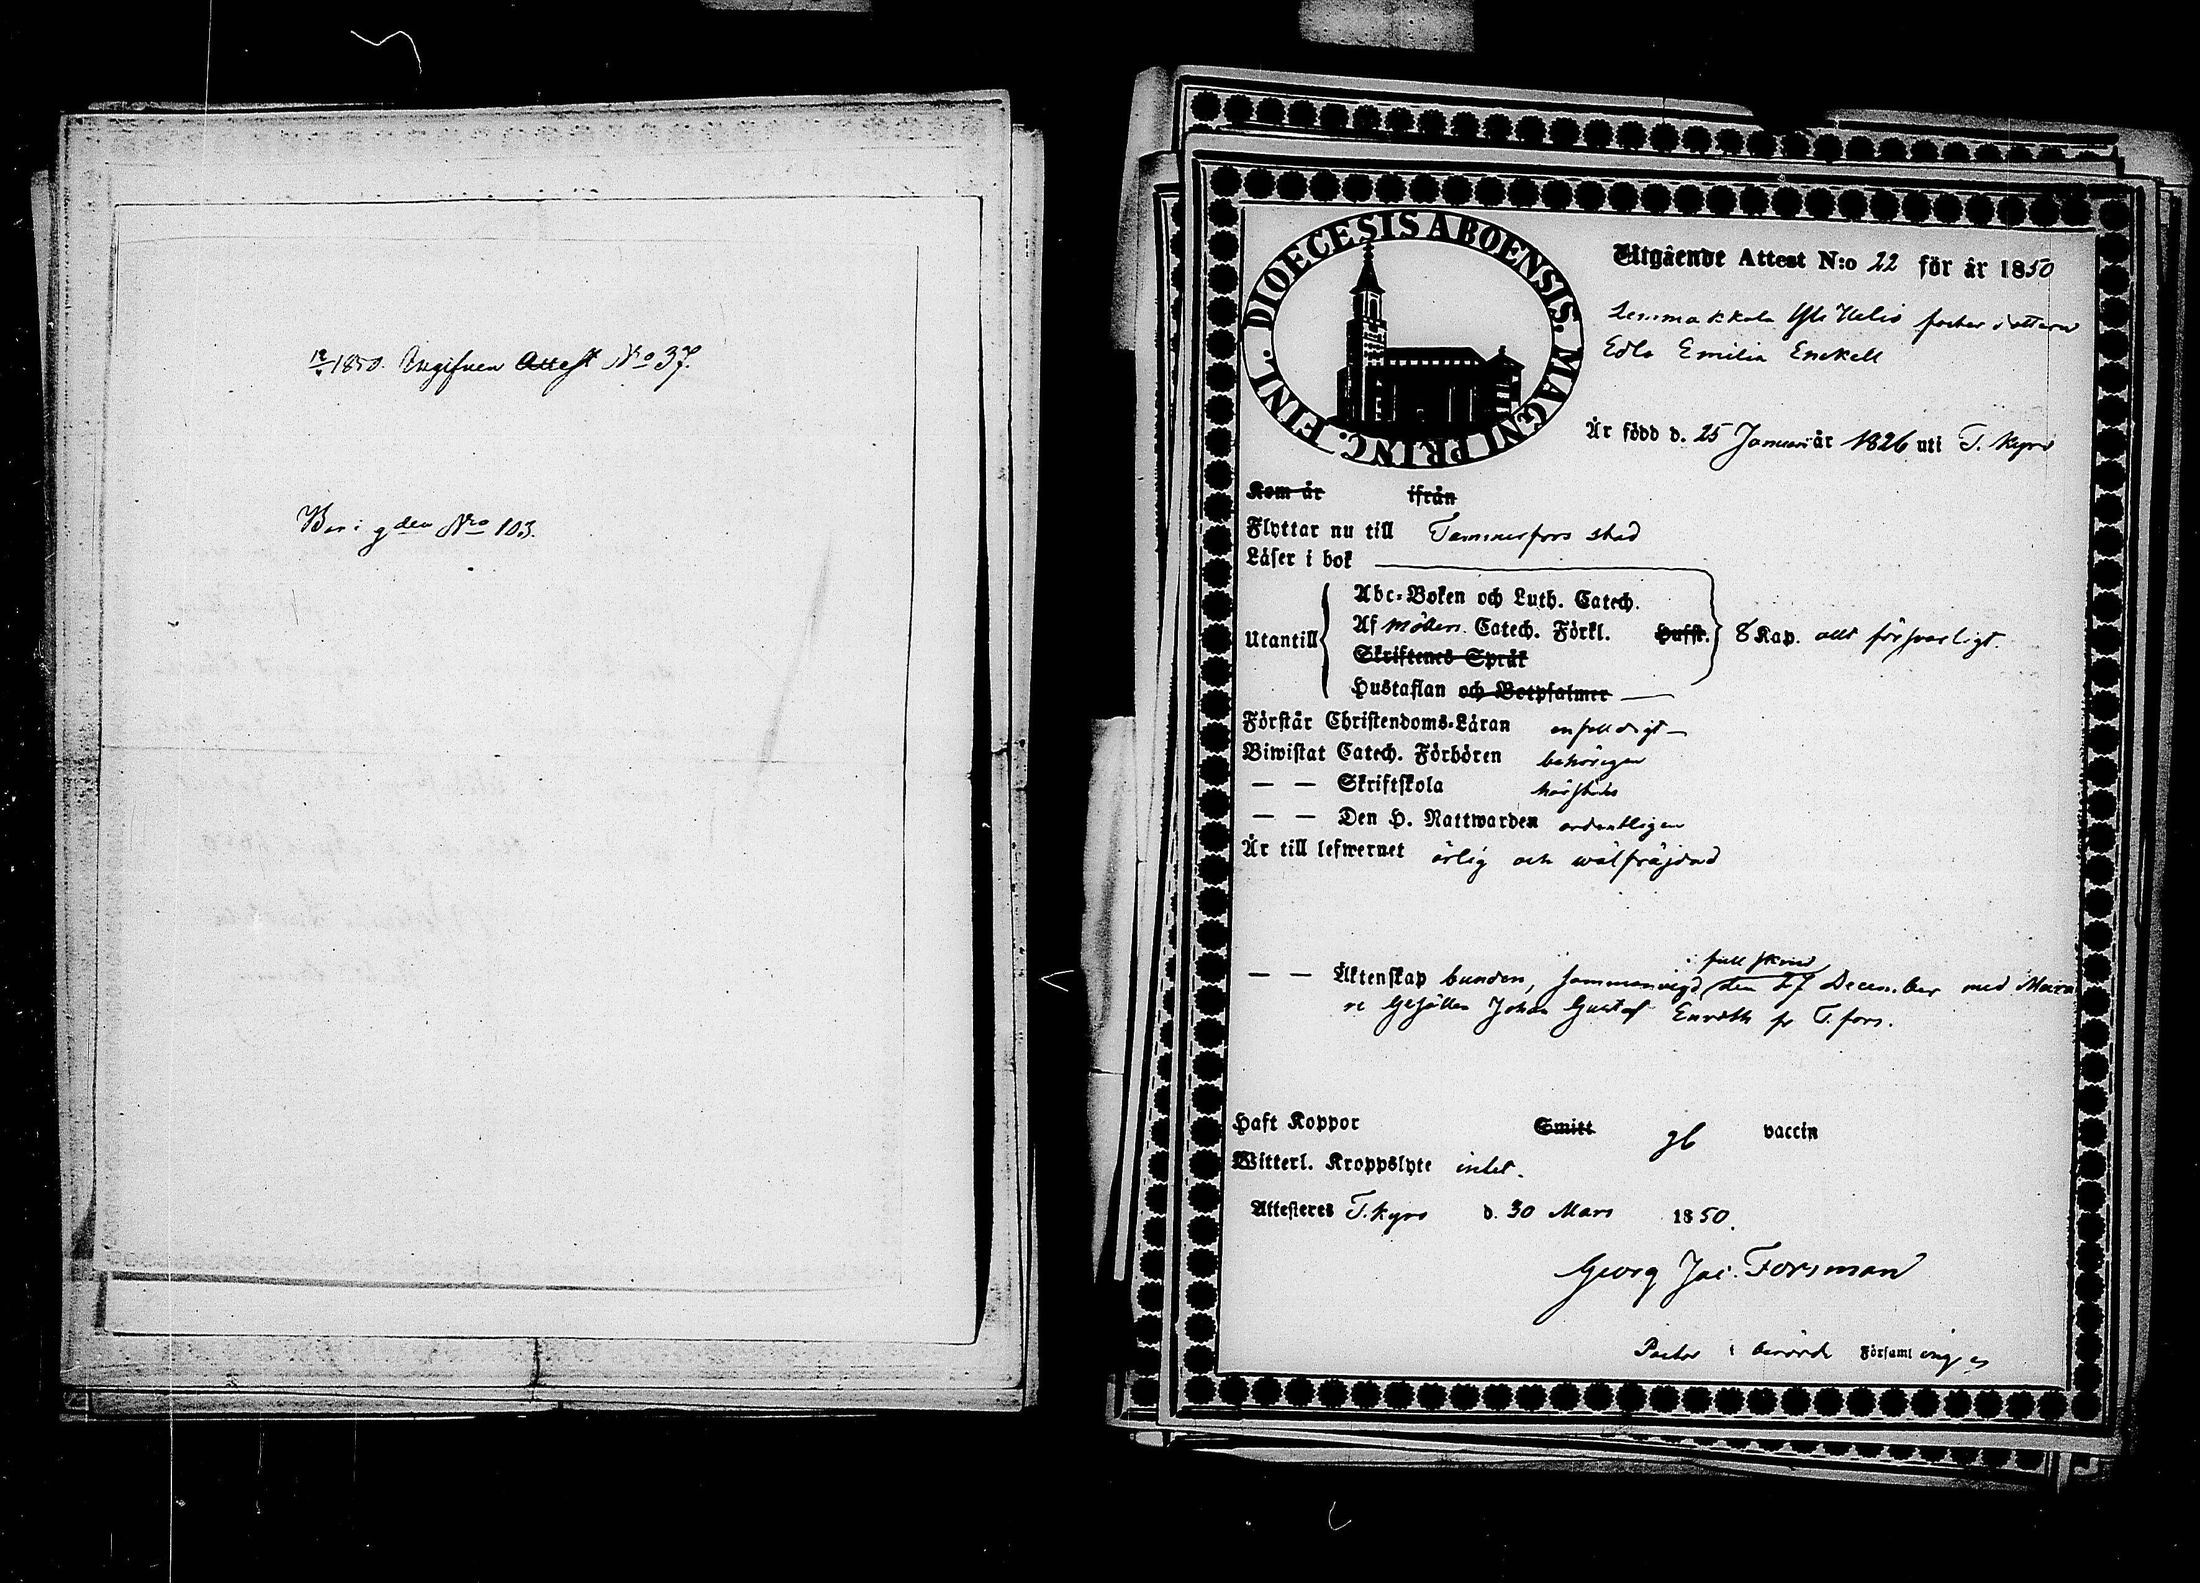 1850. Ingifven Attest No 37.
Bor i gden No 103.
DIOECESIS ABOENSIS. MAGNI PRINC. FINL.
Utgående Attest N:o 22 för år 1850
Lemmakkala foster dottern
Edla Emilia Enckell
Är född d. 25 Januari år 1826 uti T. Kyro
Kom år ifrån
Flyttar nu till Tammerfors stad
Läser i bok
Utantill
Abc-Boken och Luth. Catech.
Af Möllers Catech. Förkl. Hufst. 8 Kap. allt försvarligt.
Skriftenes Språk
Hustaflan och Botpsalmer
Förstår Christendoms-Läran enfaldigt
Biwistat Catech. Förhören behörigen
— — Skriftskola härstädes
— — Den H. Nattwarden ordentligen
Är till lefwernet ärlig och wälfräjdad
i fullt skrud
— — Äktenskap bunden, sammanvigd den 27 December med Mura
re Gesällen Johan Gustaf Enroth fr T.fors.
Haft Koppor Smitt gb vaccin
Witterl. Kroppslyte intet.
Attesteres T.Kyro d. 30 Mars 1850.
Georg Jac. Forsman
Pastor i berörde Församlinges